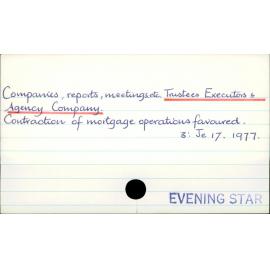 Companies, reports, meetings etc. Trustees Executors &
Agency Company.
Contraction of mortgage operations favoured.
3: Je 17. 1977.
EVENING STAR